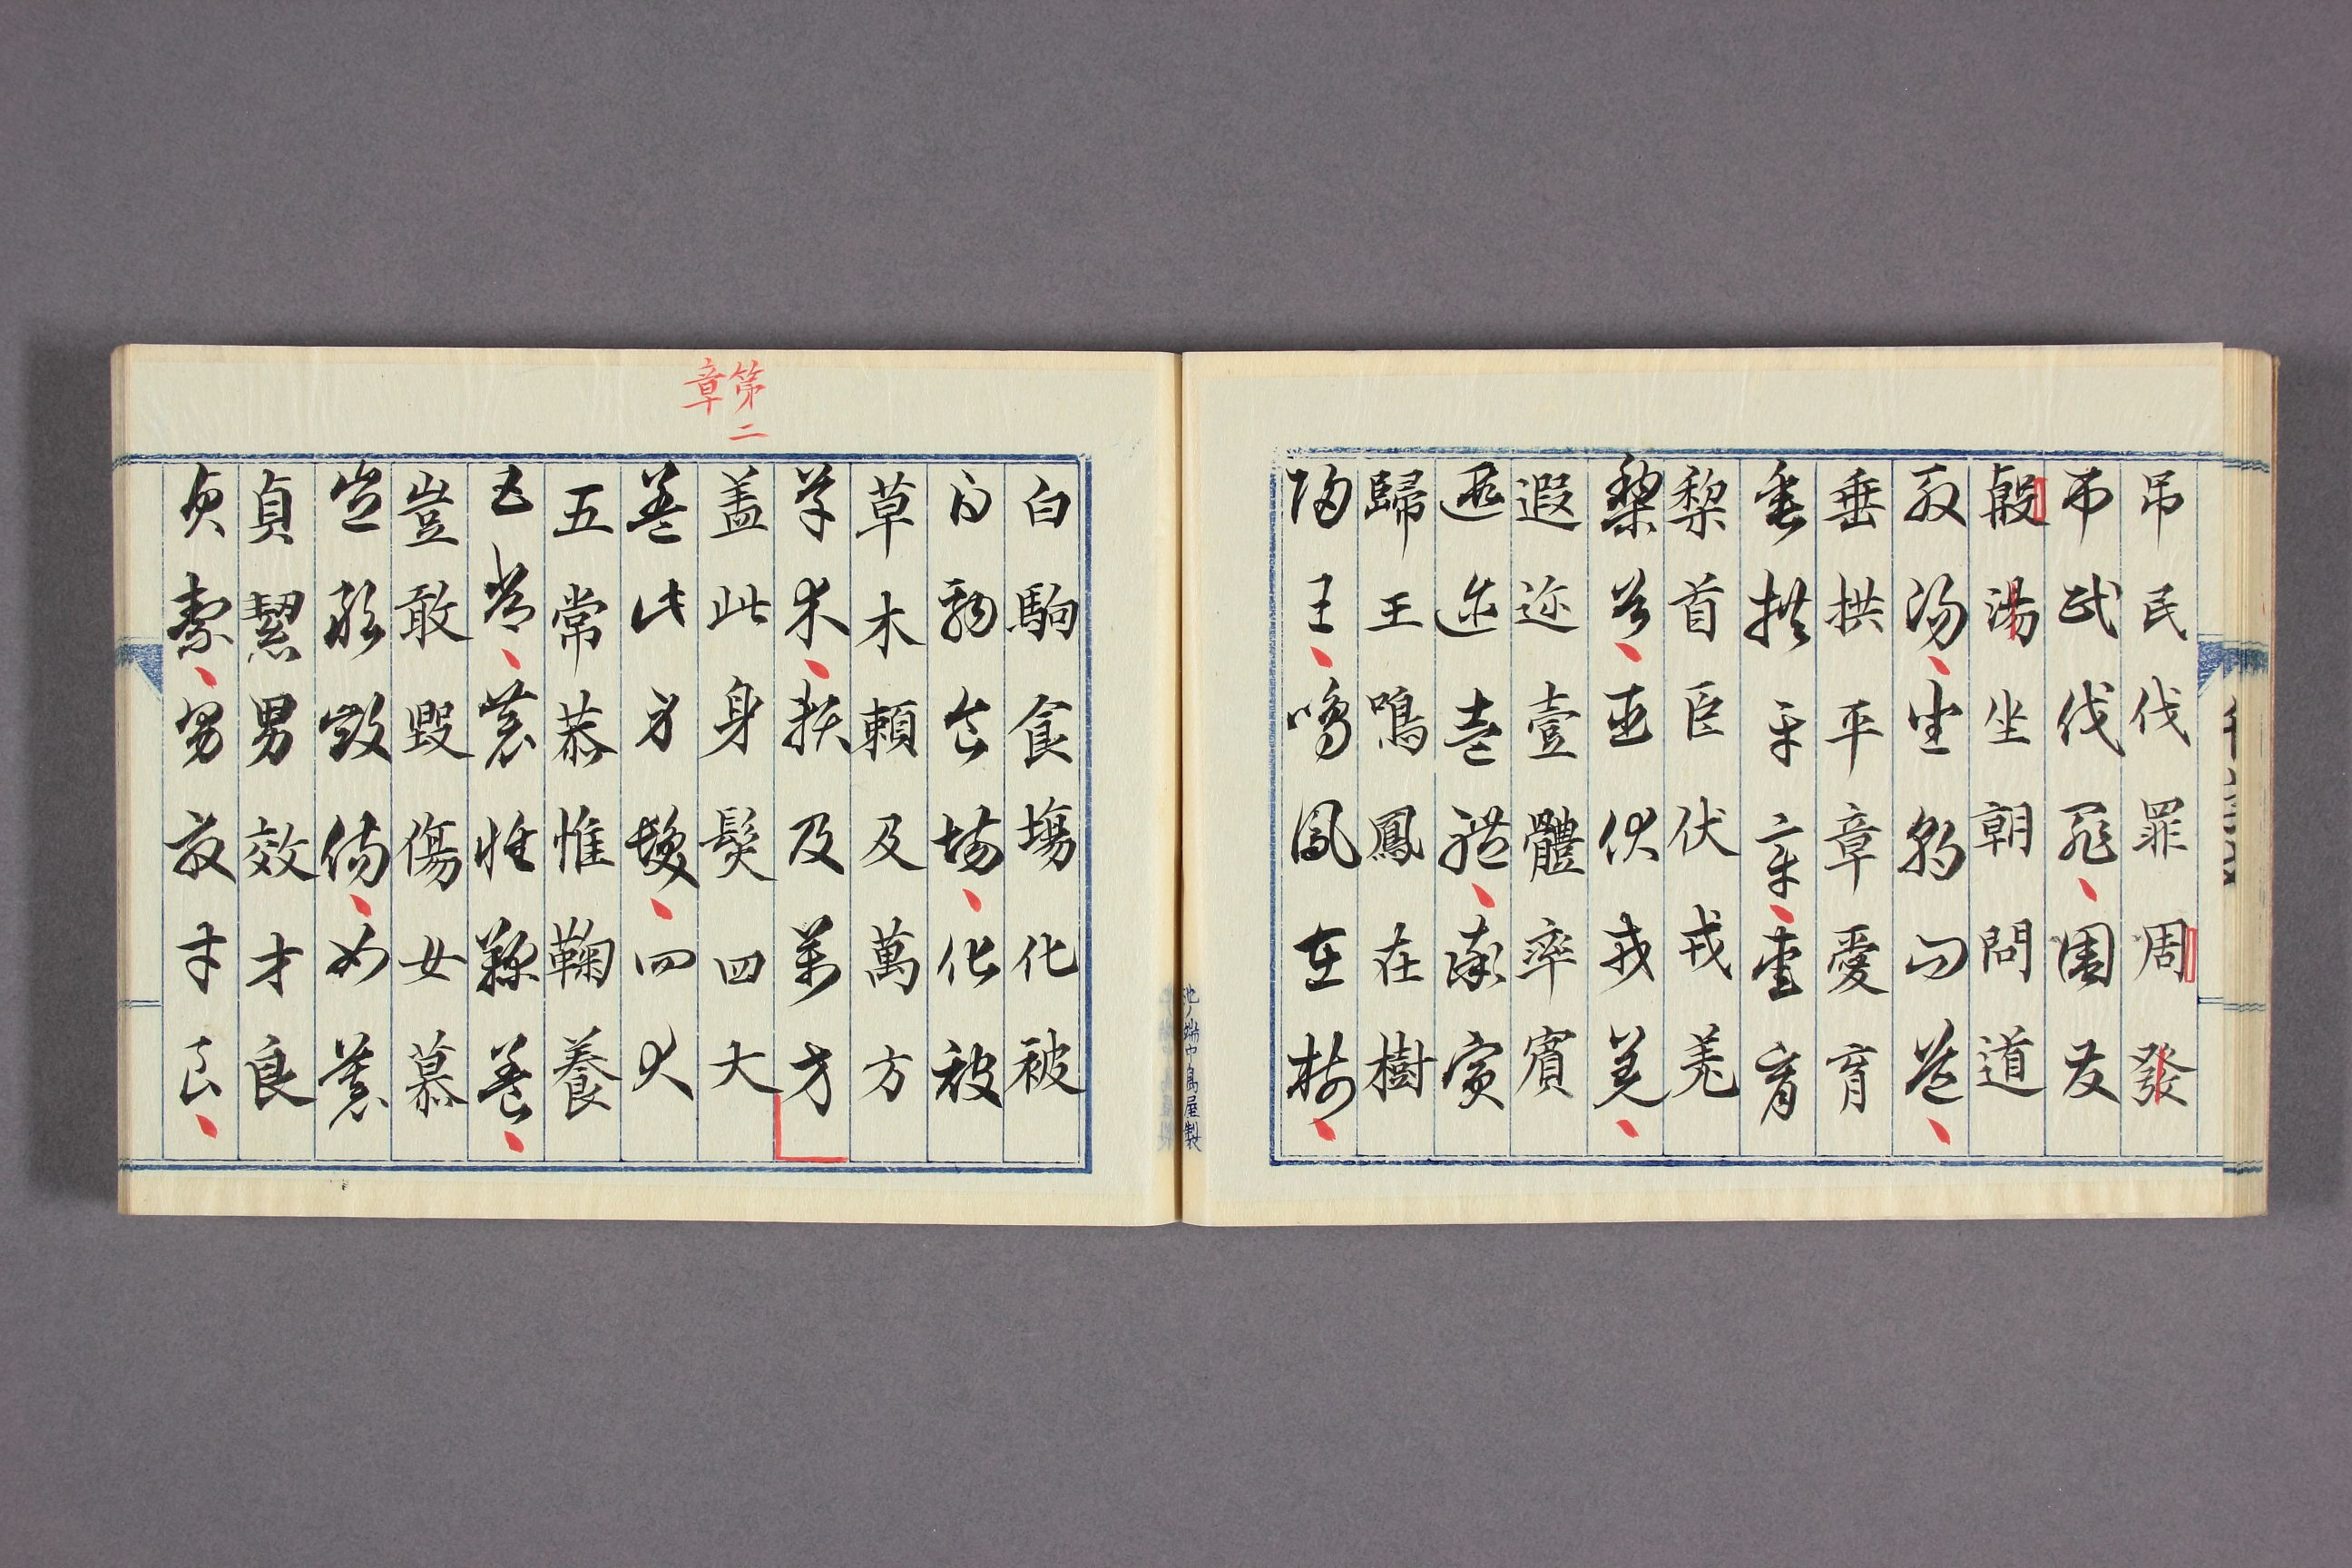 吊民伐罪周發
吊民伐罪周發
殷湯坐朝問道
殷湯坐朝問道
垂拱平章愛育
垂拱平章愛育
黎首臣伏戎羌
黎首臣伏戎羌
遐迩壹體率賓
遐迩壹體率賓
歸王鳴鳳在樹
歸王鳴鳳在樹
池ノ端中島屋製
白駒食場化被
白駒食場化被
草木賴及萬方
草木賴及萬方
第二章
盖此身髮四大
盖此身髮四大
五常恭惟鞠養
五常恭惟鞠養
豈敢毀傷女慕
豈敢毀傷女慕
貞絜男效才良
貞絜男效才良